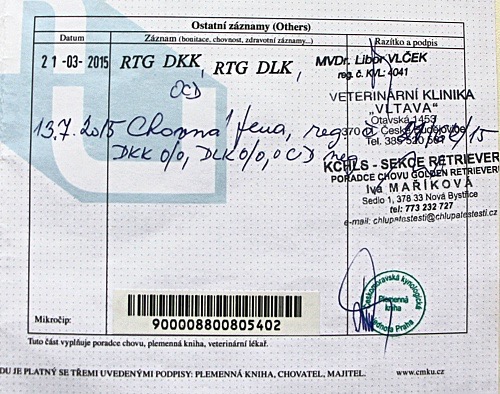 Ostatní záznamy (Others)
Datum Záznam (bonitace, chovnost, zdravotní záznamy...) Razítko a podpis
21-03-2015 RTG DKK, RTG DLK,
OCD
MVDr. Libor VLČEK
reg. č. KVL: 4041
VETERINÁRNÍ KLINIKA
„VLTAVA“
Otavská 1453
370 České Budějovice
Tel. 385 520 567
13.7.2015 Chovná fena, reg. /15
DKK 0/0, DLK 0/0, OCD neg
KCHLS - SEKCE RETRIEVER
PORADCE CHOVU GOLDEN RETRIEVERU
Iva MAŘÍKOVÁ
Sedlo 1, 378 33 Nová Bystřice
tel: 773 232 727
e-mail: chlupatestesti@chlupatestesti.cz
Českomoravská kynologická
Plemenná
kniha
jednota Praha
Mikročip:
900008800805402
Tuto část vyplňuje poradce chovu, plemenná kniha, veterinární lékař.
DU JE PLATNÝ SE TŘEMI UVEDENÝMI PODPISY: PLEMENNÁ KNIHA, CHOVATEL, MAJITEL. www.cmku.cz